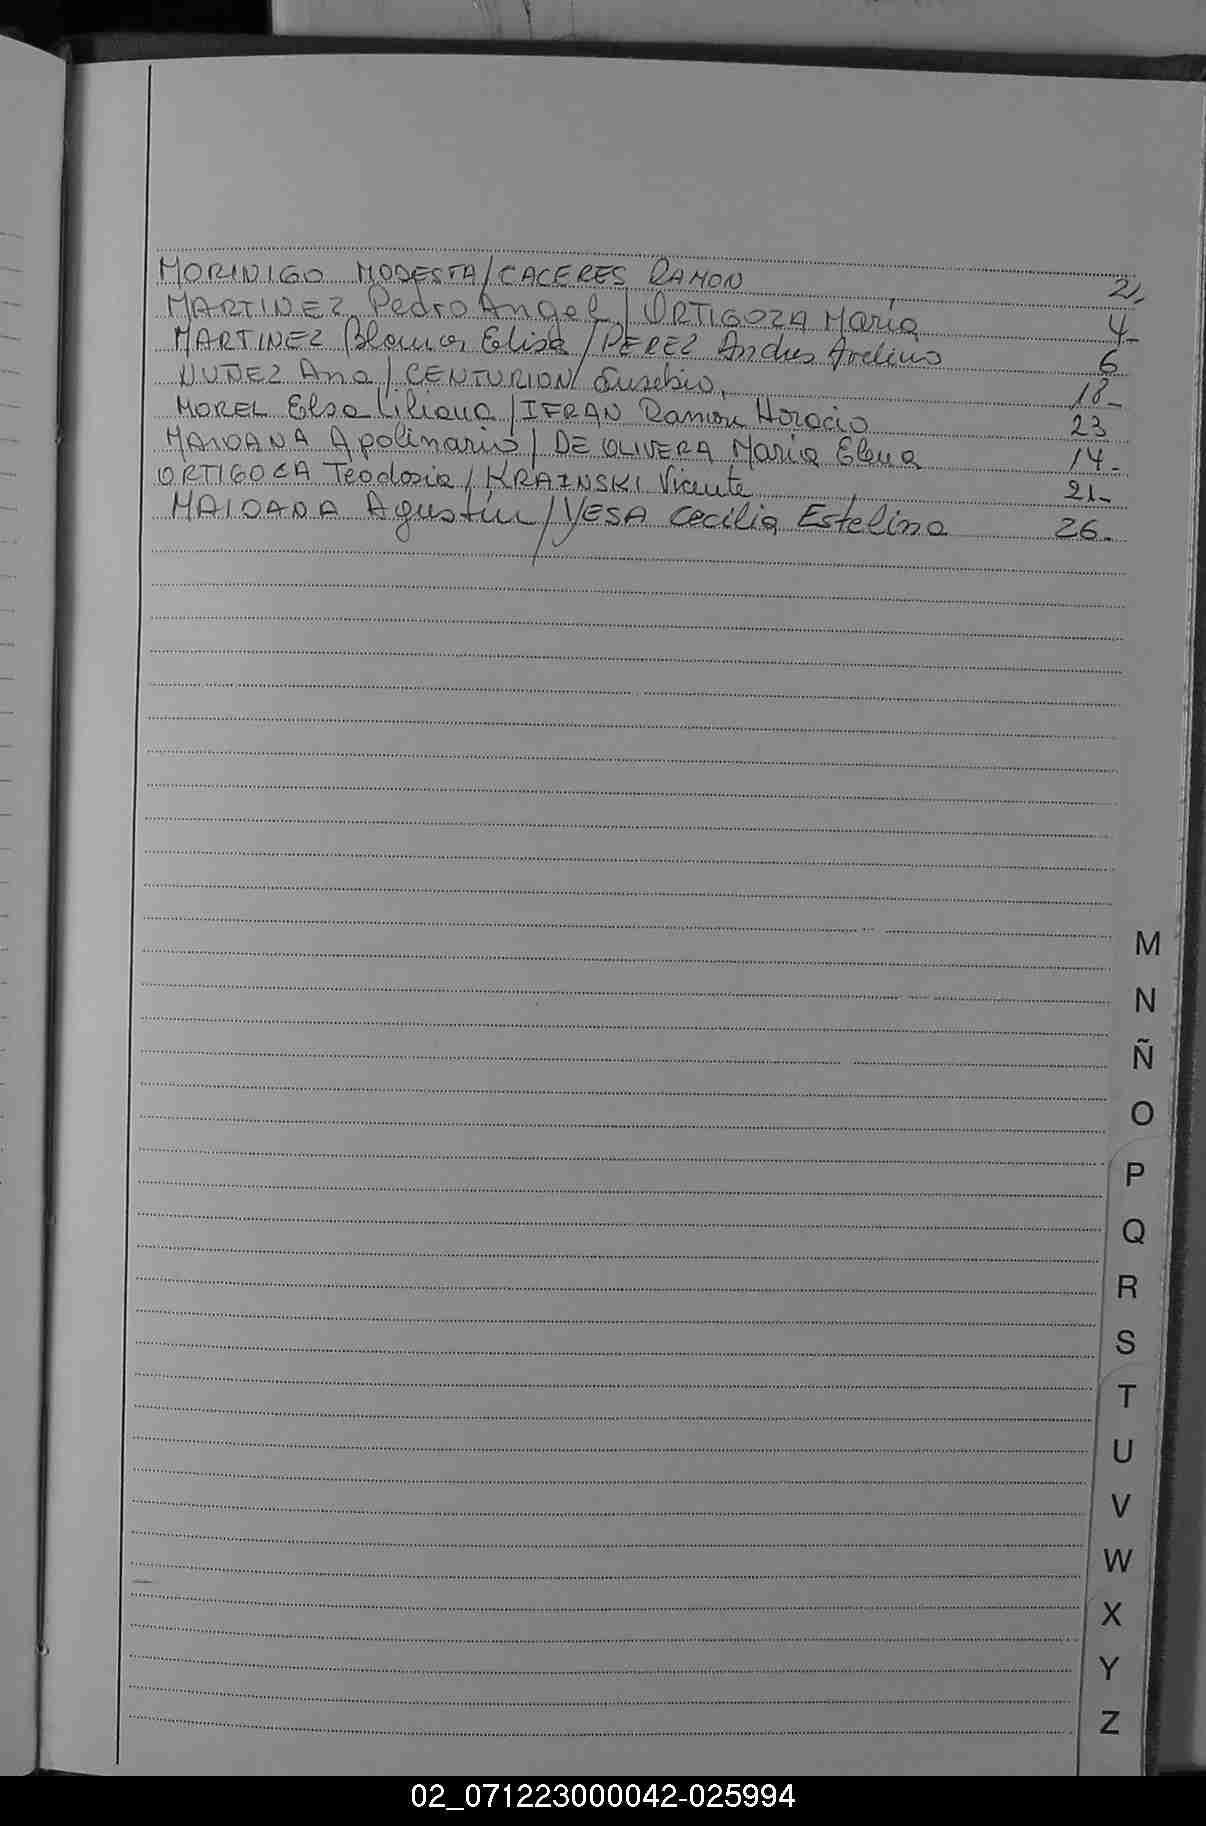 MORINIGO MODESTA/CACERES RAMON 2,
MARTINEZ Pedro Angel / ORTIGOZA María 4-
MARTINEZ Blanca Elisa / PEREZ Andres Avelino 6
NUÑEZ Ana / CENTURION Eusebio, 18-
MOREL Elsa Liliana / IFRAN Ramon Horacio 23
MAIDANA Apolinario / DE OLIVERA María Elena 14-
ORTIGOZA Teodosia / KRAINSKI Vicente 21-
MAIDANA Agustín / YESA Cecilia Estelina 26-
M
N
Ñ
O
P
Q
R
S
T
U
V
W
X
Y
Z
02_071223000042-025994